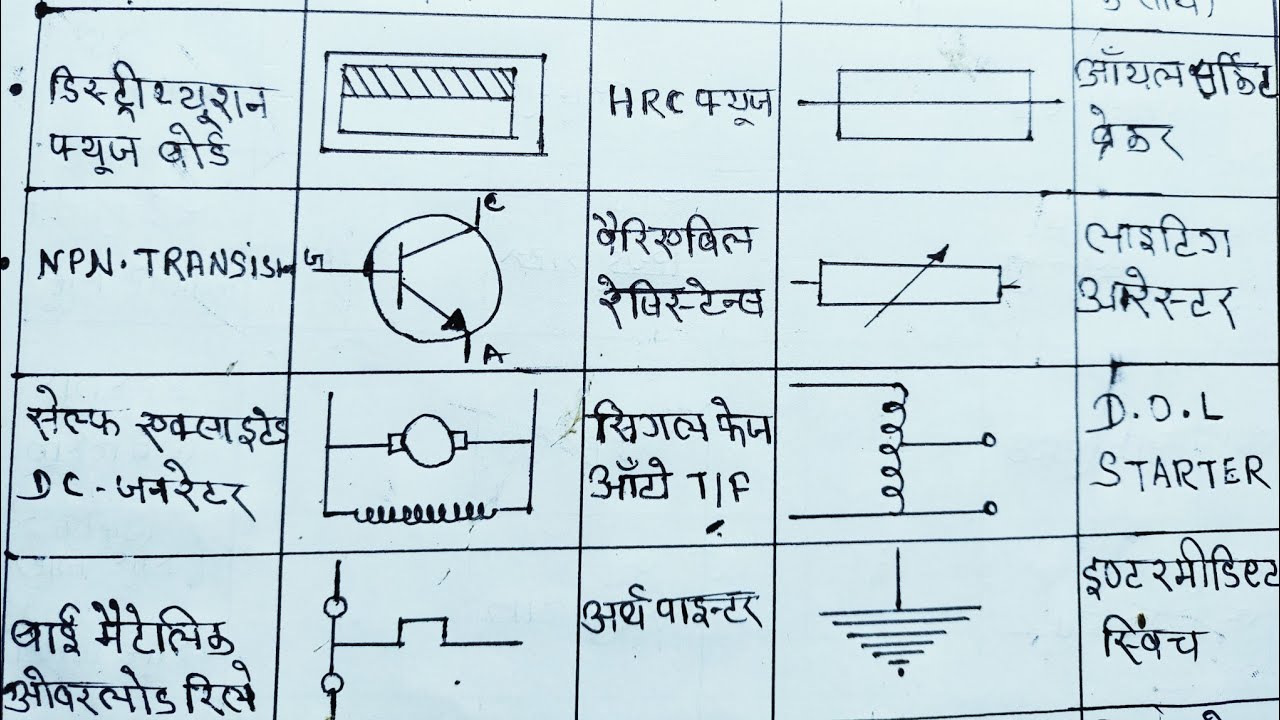 डिस्ट्रीब्यूशन
फ्यूज बोर्ड
HRC फ्यूज
ऑयल सर्किट
ब्रेकर
NPN. TRANSISt
C
A
वैरिएबिल
रेजिस्टेन्स
लाइटिंग
अरेस्टर
सेल्फ एक्साइटेड
DC - जनरेटर
सिंगल फेज
ऑटो T/F
D.O.L
STARTER
बाई मैटेलिक
ओवरलोड रिले
अर्थ पाइन्टर
इण्टरमीडिएट
स्विच